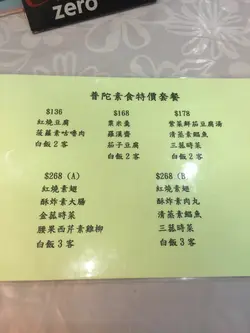 zero
普陀素食特價套餐
$136
紅燒豆腐
菠蘿素咕嚕肉
白飯2客
$168
粟米羹
羅漢齋
茄子豆腐
白飯2客
$178
紫菜鮮茄豆腐湯
清蒸素鯧魚
三菇時菜
白飯2客
$268 (A)
紅燒素翅
酥炸素大腸
金菇時菜
腰果西芹素雞柳
白飯3客
$268 (B)
紅燒素翅
酥炸素肉丸
清蒸素鯧魚
三菇時菜
白飯3客